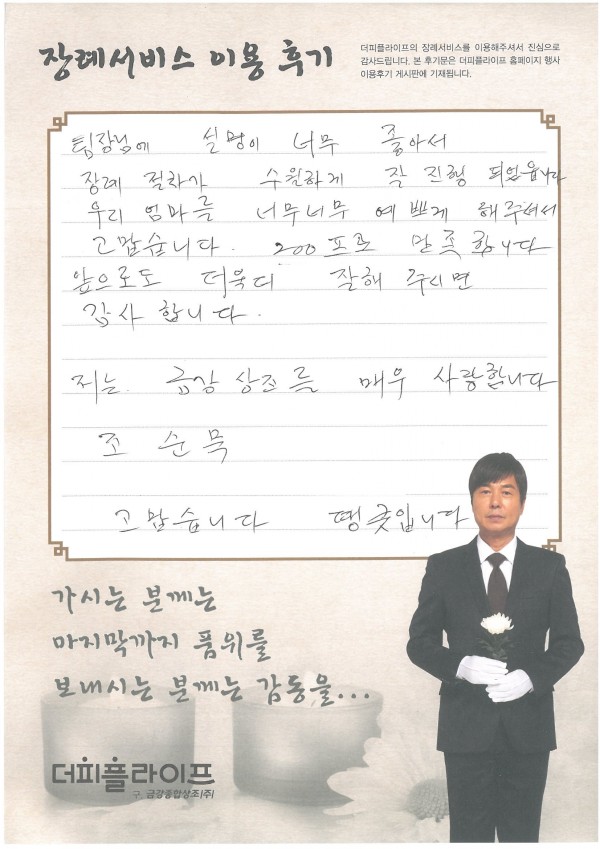 장례서비스 이용 후기
더피플라이프의 장례서비스를 이용해주셔서 진심으로
감사드립니다. 본 후기문은 더피플라이프 홈페이지 행사
이용후기 게시판에 기재됩니다.
팀장님에 설명이 너무 좋아서
장례 절차가 수월하게 잘 진행 되었읍니다
우리 엄마를 너무너무 예쁘게 해주셔서
고맙습니다. 200프로 만족합니다
앞으로도 더욱더 잘해 주시면
감사 합니다.
저는 금강 상조를 매우 사랑합니다
조 순묵
고맙습니다 땡큣입니다
가시는 분께는
마지막까지 품위를
보내시는 분께는 감동을...
더피플라이프
구. 금강종합상조(주)